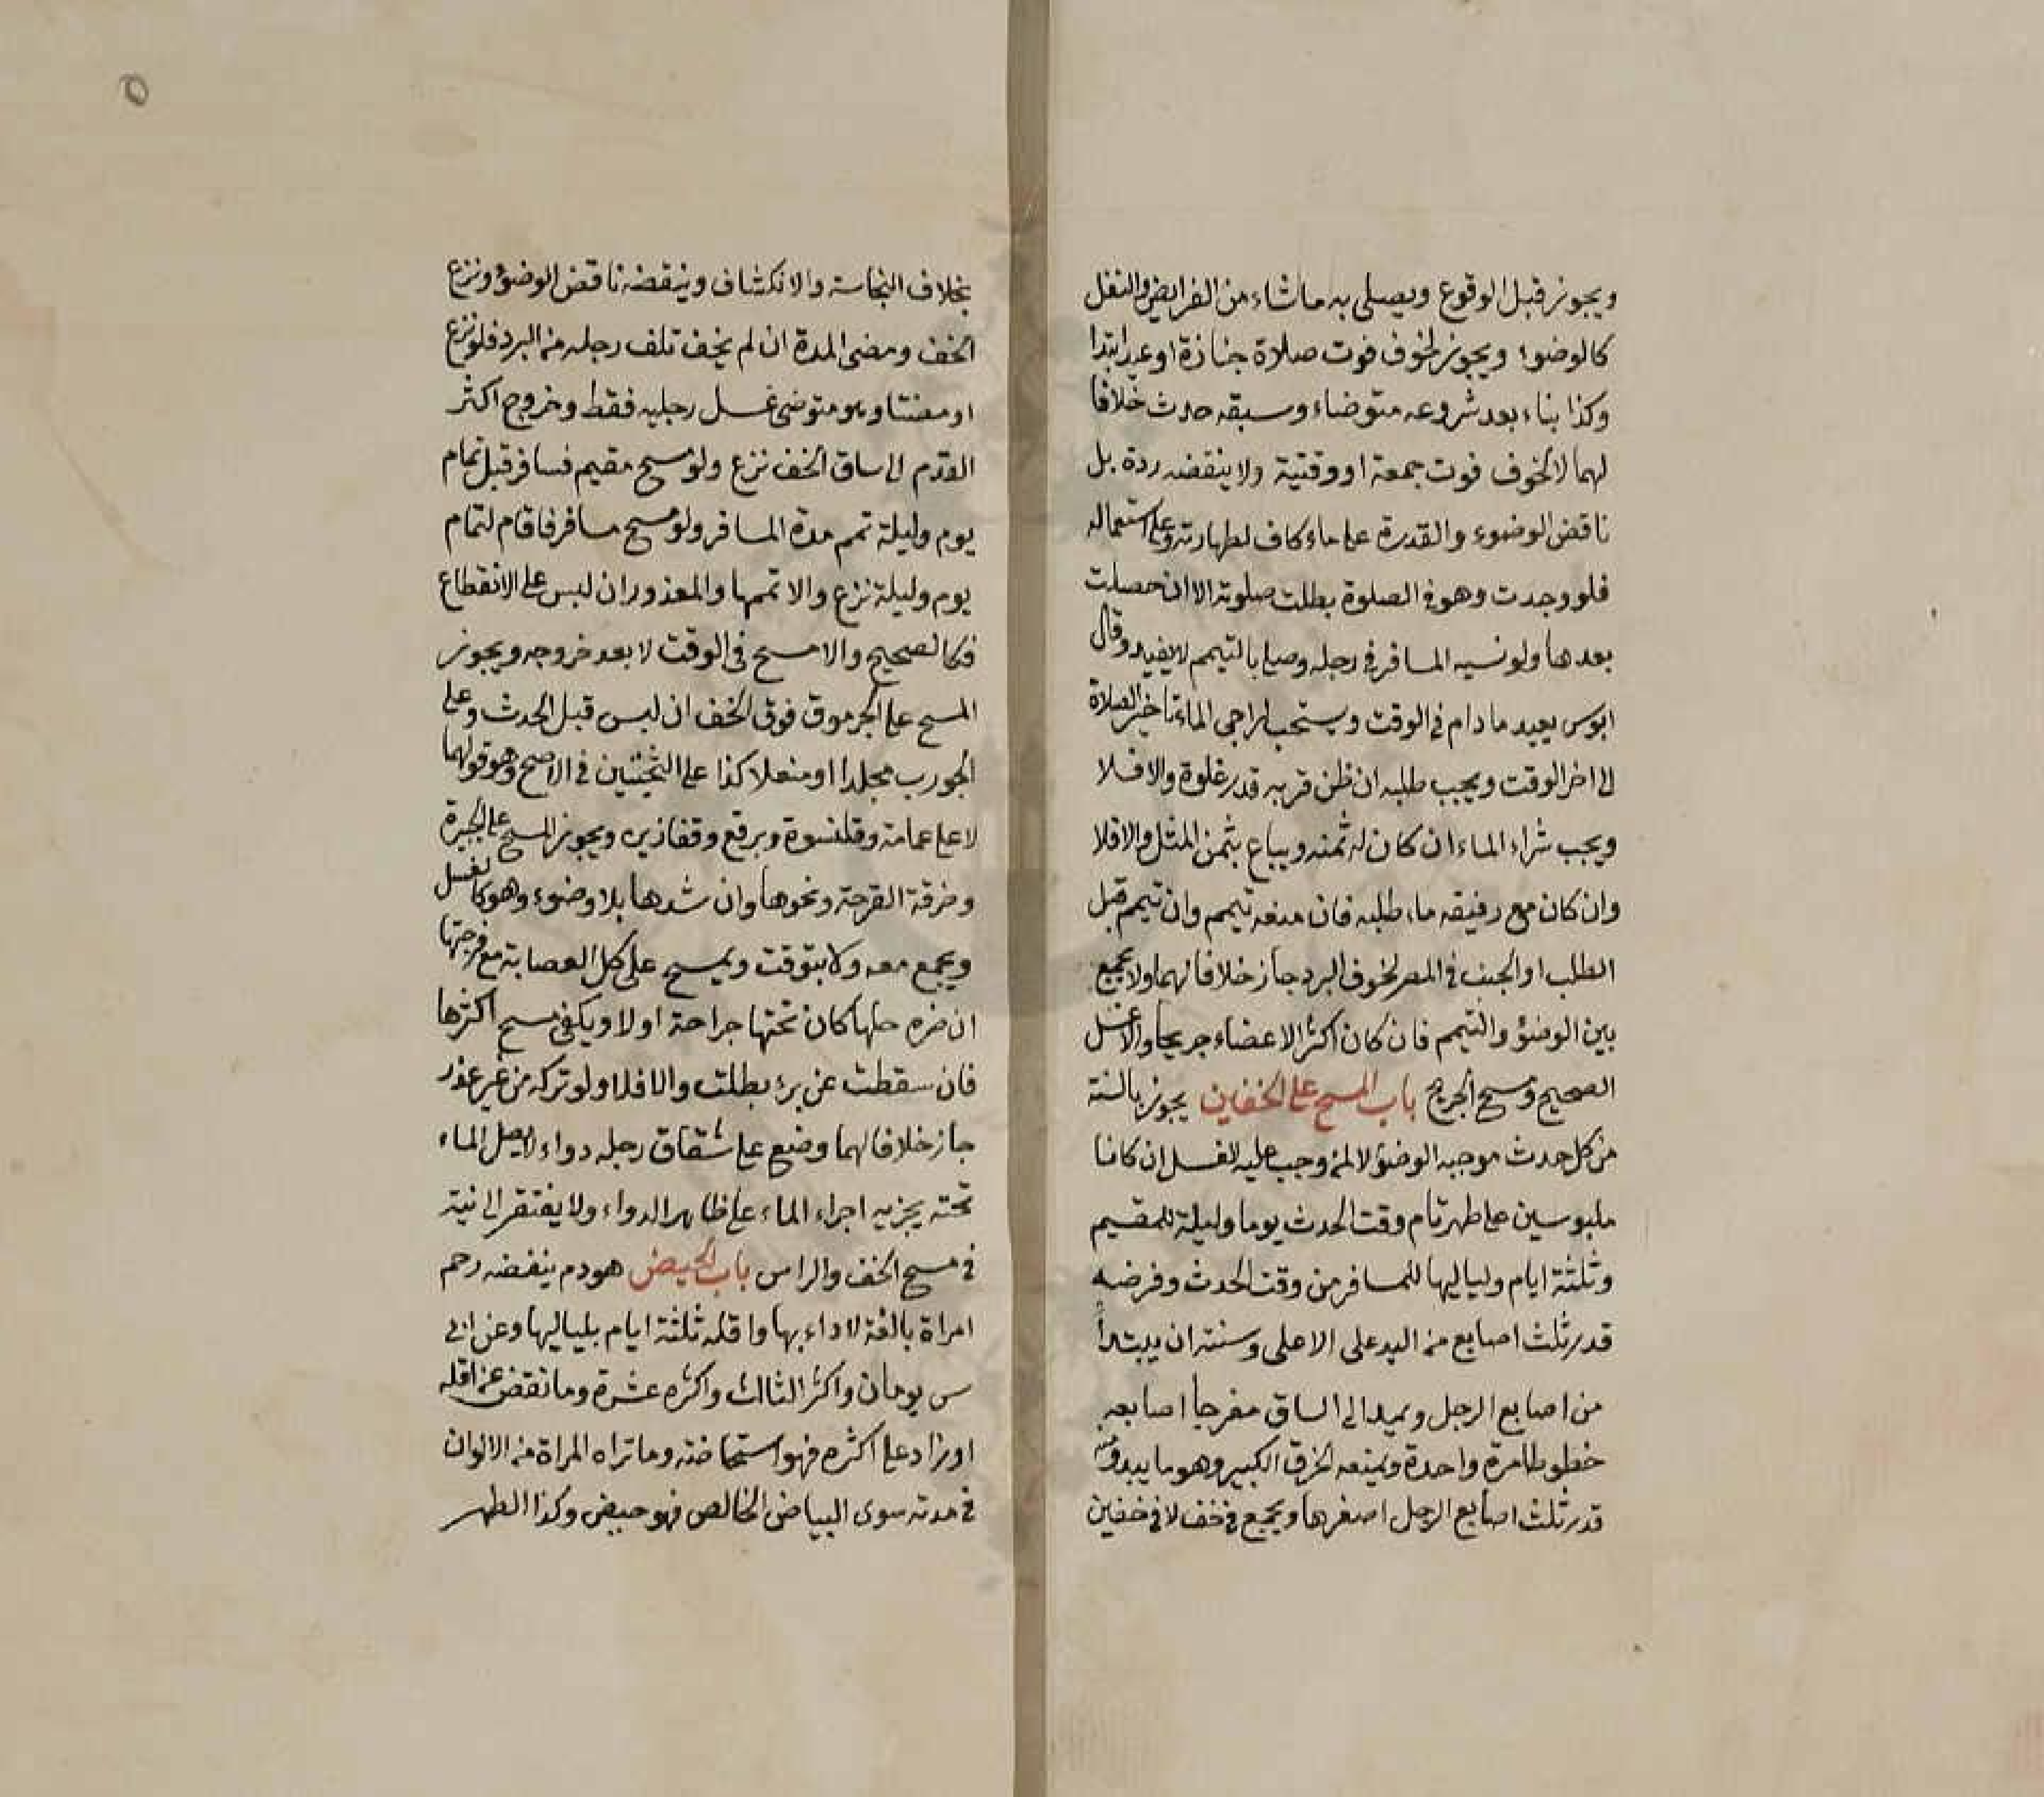 ويجوز قبل الوقوع ويصلى به ماشاء من الفرايض والنفل
كالوضوء ويجوز لخوف فوت صلاة جنازة او عيد ابتدا
وكذا بناء بعد شروعه متوضاء وسبقه حدث خلافا
لهما لا لخوف فوت جمعة او وقتية ولا ينقضه ردة بل
ناقض الوضوء والقدرة على ماء كاف لطهارته وعلى استعماله
فلو وجدت وهو فى الصلوة بطلت صلوته الا ان حصلت
بعدها ولو نسيه المسافر فى رحله وصلى بالتيمم لايعيد وقال
ابوس يعيد مادام فى الوقت ويستحب لراجى الماء تاخير الصلاة
الى اخر الوقت ويجب طلبه ان ظن قربه قدر غلوة والا فلا
ويجب شراء الماء ان كان له ثمنه ويباع بثمن المثل والا فلا
وان كان مع رفيقه ماء طلبه فان منعه تيمم وان تيمم قبل
الطلب او الجنب فى المصر لخوف البرد جاز خلافا لهما ولا يجمع
بين الوضؤ والتيمم فان كان اكثر الاعضاء جريحا والا غسل
الصحيح ومسح الجريح باب المسح على الخفين يجوز بالسنة
من كل حدث موجبه الوضؤ لا لمن وجب عليه الغسل ان كانا
ملبوسين على طهر تام وقت الحدث يوما وليلة للمقيم
وثلثة ايام ولياليها للمسافر من وقت الحدث وفرضه
قدر ثلث اصابع من اليد على الاعلى وسنته ان يبتدأ
من اصابع الرجل ويمد الى الساق مفرجا اصابعه
خطوطا مرة واحدة ويمنعه الخرق الكبير وهو ما يبدو منه
قدر ثلث اصابع الرجل اصغرها ويجمع فى خف لا فى خفين
٥
بخلاف النجاسة والانكشاف وينقضه ناقض الوضوء ونزع
الخف ومضى المدة ان لم يخف تلف رجله من البرد فلو نزع
او مضتا وهو متوضى غسل رجليه فقط وخروج اكثر
القدم الى ساق الخف نزع ولو مسح مقيم فسافر قبل تمام
يوم وليلة تمم مدة المسافر ولو مسح مسافر فاقام لتمام
يوم وليلة نزع والا تممها والمعذور ان لبس على الانقطاع
فكالصحيح والا مسح فى الوقت لا بعد خروجه ويجوز
المسح على الجرموق فوق الخف ان لبس قبل الحدث وعلى
الجورب مجلدا او منعلا كذا على الثخينين فى الاصح وهو قولهما
لا على عمامة وقلنسوة وبرقع وقفازين ويجوز المسح على الجبيرة
وخرقة القرحة ونحوها وان شدها بلا وضوء وهو كالغسل
ويجمع معه ولا يتوقت ويمسح على كل العصابة مع فرجتها
ان ضره حلها كان تحتها جراحة اولا ويكفى مسح اكثرها
فان سقطت عن برء بطلت والا فلا ولو تركه من غير عذر
جاز خلافا لهما وضع على شقاق رجله دواء لايصل الماء
تحته يجزيه اجراء الماء على ظاهر الدواء ولا يفتقر الى نية
فى مسح الخف والراس باب الحيض هو دم ينفضه رحم
امراة بالغة لا داء بها واقله ثلثة ايام بلياليها وعن ابى
س يومان واكثر الثالث واكثره عشرة وما نقض عن اقله
او زاد على اكثره فهو استحاضة وما تراه المراة من الالوان
فى مدته سوى البياض الخالص فهو حيض وكذا الطهر